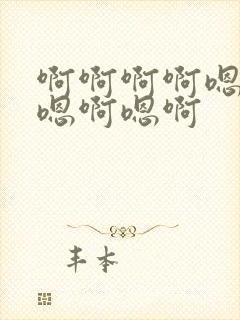 啊啊啊啊嗯
嗯啊嗯啊
丰本